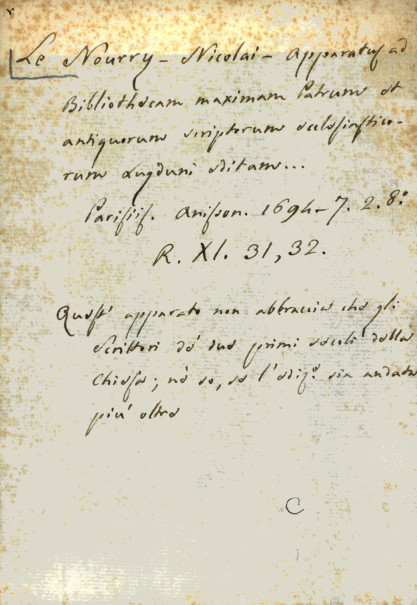 Le Nourry - Nicolai - Apparatus ad
Bibliothecam maximam Patrum et
antiquorum scriptorum ecclesiastico-
rum Lugduni editam...
Parisiis. Anisson. 1694-7. 2. 8.º
R. XI. 31, 32.
Quest' apparato non abbraccia che gli
Scrittori de' due primi secoli della
Chiesa; nè so, se l'ediz.º sia andata
più oltre
C